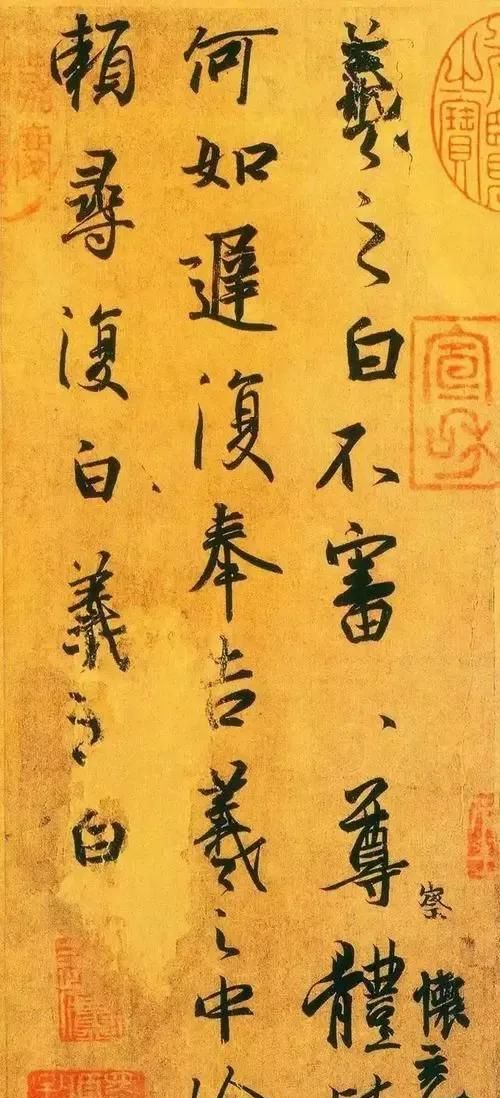 羲之白不審、尊體
何如遲復奉告羲之中
賴尋復白、羲之白
察
懷
宣和
之寶